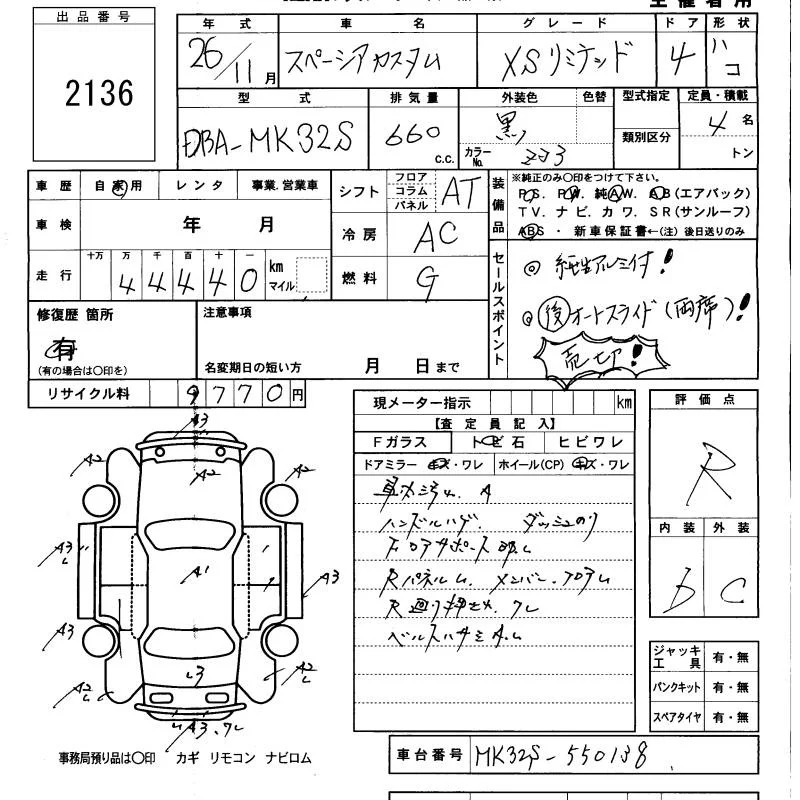 主催者用
出品番号
2136
年式 車名 グレード ドア 形状
26/11月 スペーシアカスタム XSリミテッド 4 ハコ
型式 排気量 外装色 色替 型式指定 定員・積載
DBA-MK32S 660 c.c. 黒 類別区分 4名
カラーNo. ZJ3 トン
車歴 自家用 レンタ 事業.営業車
シフト フロア コラム パネル AT
装備品 ※純正のみ〇印をつけて下さい。
PS. PW. 純AW. AB(エアバック)
TV. ナビ. カワ. SR(サンルーフ)
ABS ・ 新車保証書←(注) 後日送りのみ
車検 年 月
冷房 AC
走行 十万 万 千 百 十 一
44440 km マイル
燃料 G
セールスポイント
◎ 純正アルミ付!
◎ 後オートスライド(両席)!
売切!
修復歴 箇所
有
(有の場合は〇印を)
注意事項
名変期日の短い方 月 日まで
リサイクル料 9770円
現メーター指示 km
【査定員記入】
Fガラス トビ石 ヒビワレ
ドアミラー キズ・ワレ ホイール(CP) キズ・ワレ
A
ハンドルハゲ.
フロアサポート
Rパネルム. メンバー.フロアム
評価点
R
内装 外装
D C
ジャッキ工具 有・無
パンクキット 有・無
スペアタイヤ 有・無
A3
A2
A2
A2
A3
A1
A3
A3
A2
A2
A3.ワレ
事務局預り品は〇印 カギ リモコン ナビロム
車台番号 MK32S-550138